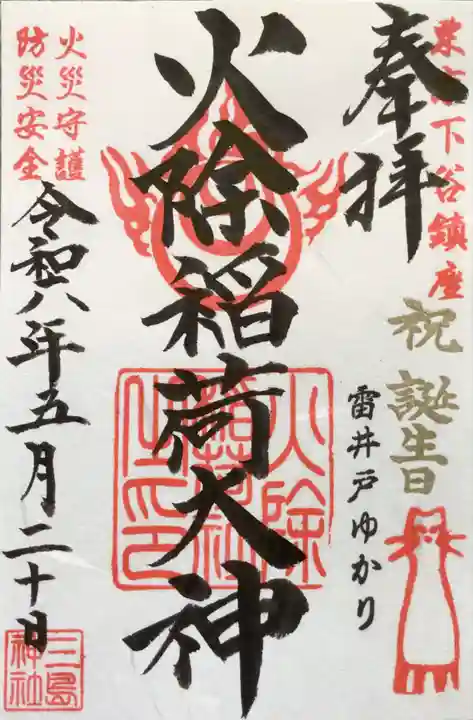 東京下谷鎮座
奉拝
祝 誕生日
雷井戸ゆかり
火除稲荷大神
火除
稲荷社
之印
火災守護
防災安全
令和八年五月二十日
三島
神社